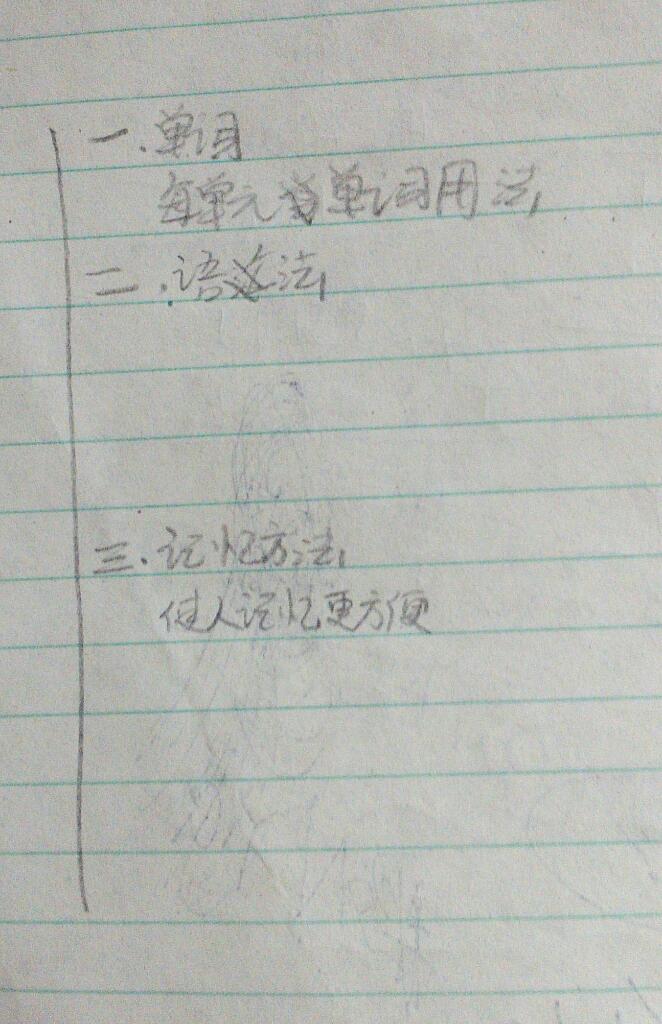 一.单词
每单元单词用法
二.语法
三.记忆方法
使人记忆更方便